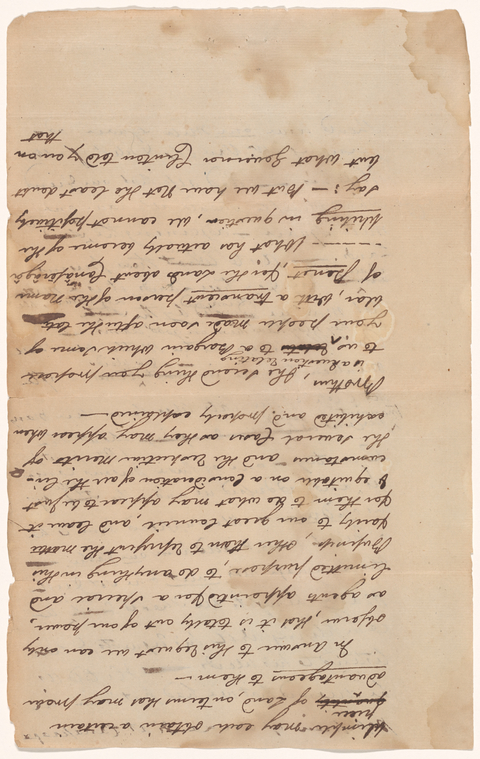 may each obtain a certain
piece
quantity of Land, on terms that may prove
advantageous to them —
In Answer to this Request we can only
observe, that it is totally out of our power,
as agents appointed for a special and
limitted purpose, to do any thing in this
Business, other than to represent the matter
fairly to our great Council and leave it
for them to do what may appear to be just
& equitable on a Consideration of all the Cir=
cumstances and the respective merits of
the several Cases as they may appear when
exhibited and properly explained —
Brothers, The second thing you propose
is a Question relating
to us, to a Bargain which some of
your people made soon after the late
War, with a transient person of the name
of Penet, for the Land about Canaseraga
---- What has actually become of the
Writing in question, we cannot positively
say; — But we have Not the least doubt
but what Governor Clinton told you on
that